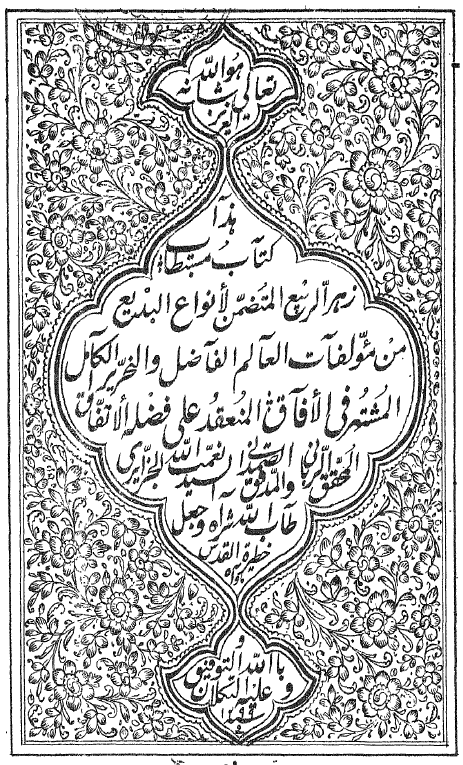 هو الله
تعالى شانه
العزيز
هذا
كتاب مستطاب
زهر الربيع المتضمن لأنواع البديع
من مؤلفات العالم الفاضل والنحرير الكامل
المشتهر في الأفاق المنعقد على فضله الاتفاق
المحقق الرباني والمدقق الصمداني السيد نعمت الله الجزايري
طاب الله ثراه وجعل
خطيرة القدس
مثواه
و
بالله التوفيق
و عليه التكلان